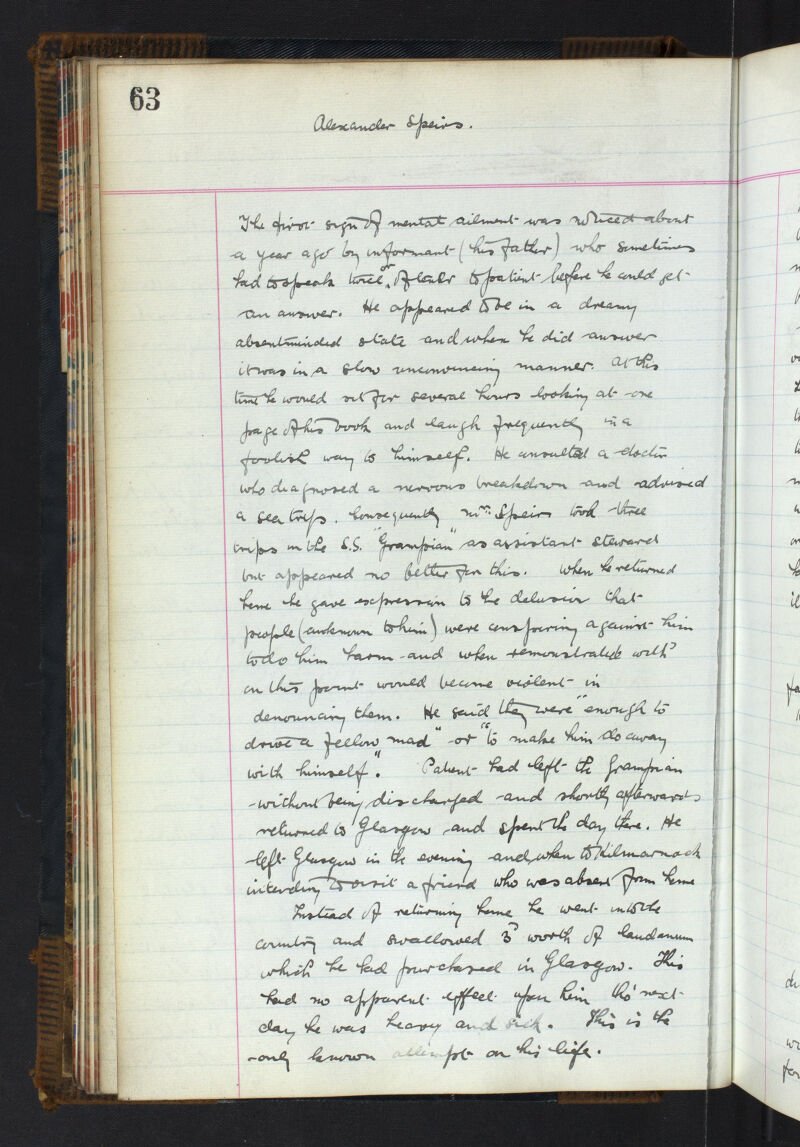 63
Alexander Speirs.
The first sign of mental ailment was noticed about
a year ago by informant (his father) who sometimes
had to speak twice or oftener to patient before he could get
an answer. He appeared to be in a dreamy
absentminded state and when he did answer
it was in a slow unconvincing manner. At this
time he would sit for several hours looking at one
page of his book and laugh frequently in a
foolish way to himself. He consulted a doctor
who diagnosed a nervous breakdown and advised
a sea trip. Consequently Speirs took three
trips in the S.S. "Grampian" as assistant steward
but appeared no better for this. When he returned
home he gave expression to the delusion that
people (unknown to him) were conspiring against him
to do him harm and when remonstrated with
on this point would become violent in
denouncing them. He said they were "enough to
drive a fellow mad" or "to make him do away
with himself". Patient had left the Grampian
without being discharged and shortly afterwards
returned to Glasgow and spent the day there. He
left Glasgow in the evening and when to Kilmarnock
intending to visit a friend who was absent from home
Instead of returning home he went into the
country and swallowed 3d worth of laudanum
which he had purchased in Glasgow. This
had no apparent effect upon him tho' next
day he was heavy and sick. This is the
only known attempt on his life.